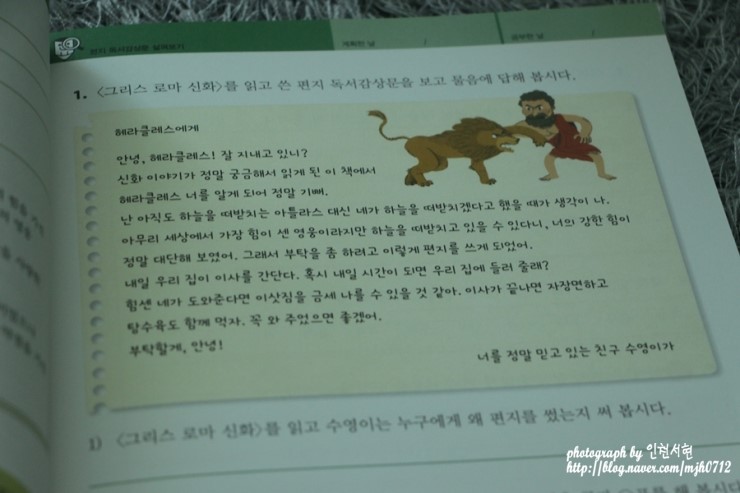 편지 독서감상문 살펴보기
계획한 날 /
공부한 날 /
1. <그리스 로마 신화>를 읽고 쓴 편지 독서감상문을 보고 물음에 답해 봅시다.
헤라클레스에게
안녕, 헤라클레스! 잘 지내고 있니?
신화 이야기가 정말 궁금해서 읽게 된 이 책에서
헤라클레스 너를 알게 되어 정말 기뻐.
난 아직도 하늘을 떠받치는 아틀라스 대신 네가 하늘을 떠받치겠다고 했을 때가 생각이 나.
아무리 세상에서 가장 힘이 센 영웅이라지만 하늘을 떠받치고 있을 수 있다니, 너의 강한 힘이
정말 대단해 보였어. 그래서 부탁을 좀 하려고 이렇게 편지를 쓰게 되었어.
내일 우리 집이 이사를 간단다. 혹시 내일 시간이 되면 우리 집에 들러 줄래?
힘센 네가 도와준다면 이삿짐을 금세 나를 수 있을 것 같아. 이사가 끝나면 자장면하고
탕수육도 함께 먹자. 꼭 와 주었으면 좋겠어.
부탁할게, 안녕!
너를 정말 믿고 있는 친구 수영이가
1) <그리스 로마 신화>를 읽고 수영이는 누구에게 왜 편지를 썼는지 써 봅시다.
photograph by 인천서현
http://blog.naver.com/mjh0712